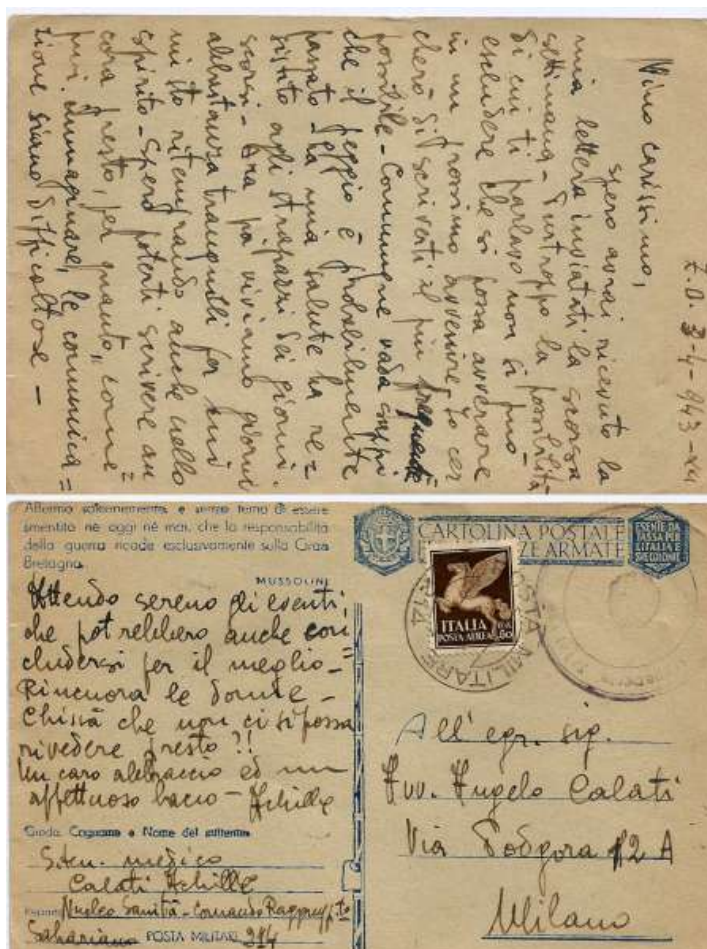 Z.O. 3-4-943-XXI
Nino carissimo,
spero avrai ricevuto la
mia lettera inviatati la scorsa
settimana - Purtroppo la possibilità
di cui ti parlavo non si può
escludere che si possa avverare
in un prossimo avvenire. Io cer
cherò di scriverti il più frequente
possibile - Comunque vada sappi
che il peggio è probabilmente
passato - La mia salute ha re=
sistito agli strapazzi dei giorni
scorsi - Ora poi viviamo giorni
abbastanza tranquilli per cui
mi sto ritemprando anche nello
spirito - Spero poterti scrivere an
cora presto, per quanto, come
puoi immaginare, le comunica=
zione siano difficoltose -
Affermo solennemente, e senza tema di essere
smentito né oggi né mai, che la responsabilità
della guerra ricade esclusivamente sulla Gran
Bretagna.
MUSSOLINI
Attendo sereno gli eventi,
che potrebbero anche con
cludersi per il meglio -
Rincuora le donne -
Chissà che non ci si possa
rivedere presto !!
Un caro abbraccio ed un
affettuoso bacio - Achille
Grado, Cognome e Nome del mittente
S.ten. medico
Calati Achille
Nucleo Sanità - Comando Raggrupp.to
Sahariano POSTA MILITARE 214
CARTOLINA POSTALE
ZE ARMATE
ESENTE DA
TASSA PER
L'ITALIA E
POSTA MILITARE
ITALIA
POSTA AEREA
All' egr. sig.
Avv. Angelo Calati
Via Podgora 12 A
Milano